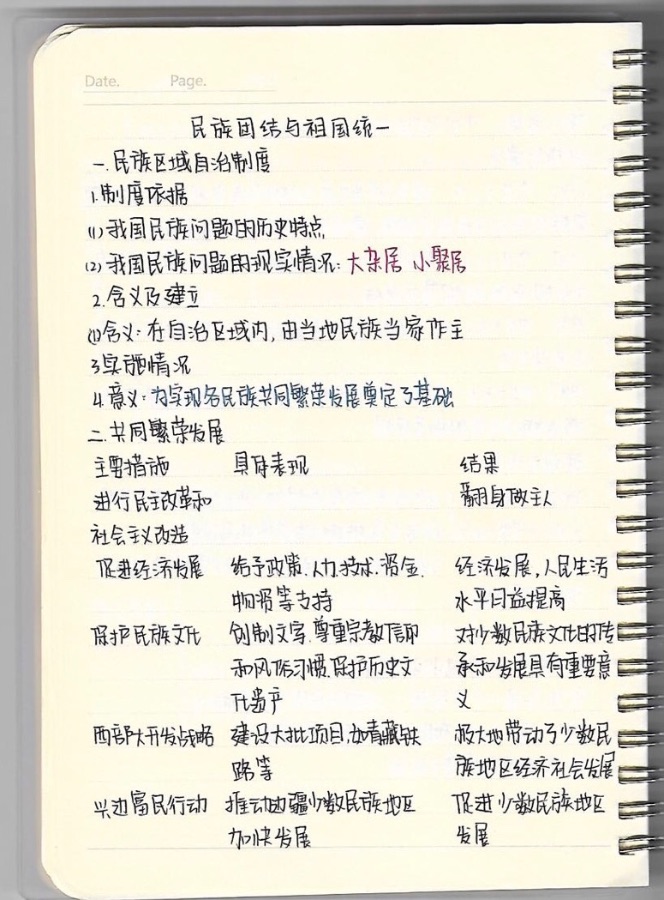 Date. Page.
民族团结与祖国统一
一.民族区域自治制度
1.制度依据
(1)我国民族问题的历史特点
(2)我国民族问题的现实情况:大杂居 小聚居
2.含义及建立
(1)含义:在自治区域内,由当地民族当家作主
3.实施情况
4.意义:为实现各民族共同繁荣发展奠定了基础
二.共同繁荣发展
主要措施 具体表现 结果
进行民主改革和 翻身做主人
社会主义改造
促进经济发展 给予政策.人力.技术.资金. 经济发展,人民生活
物资等支持 水平日益提高
保护民族文化 创制文字.尊重宗教信仰 对少数民族文化的传
和风俗习惯.保护历史文 承和发展具有重要意
化遗产 义
西部大开发战略 建设大批项目,如青藏铁 极大地带动了少数民
路等 族地区经济社会发展
兴边富民行动 推动边疆少数民族地区 促进少数民族地区
加快发展 发展